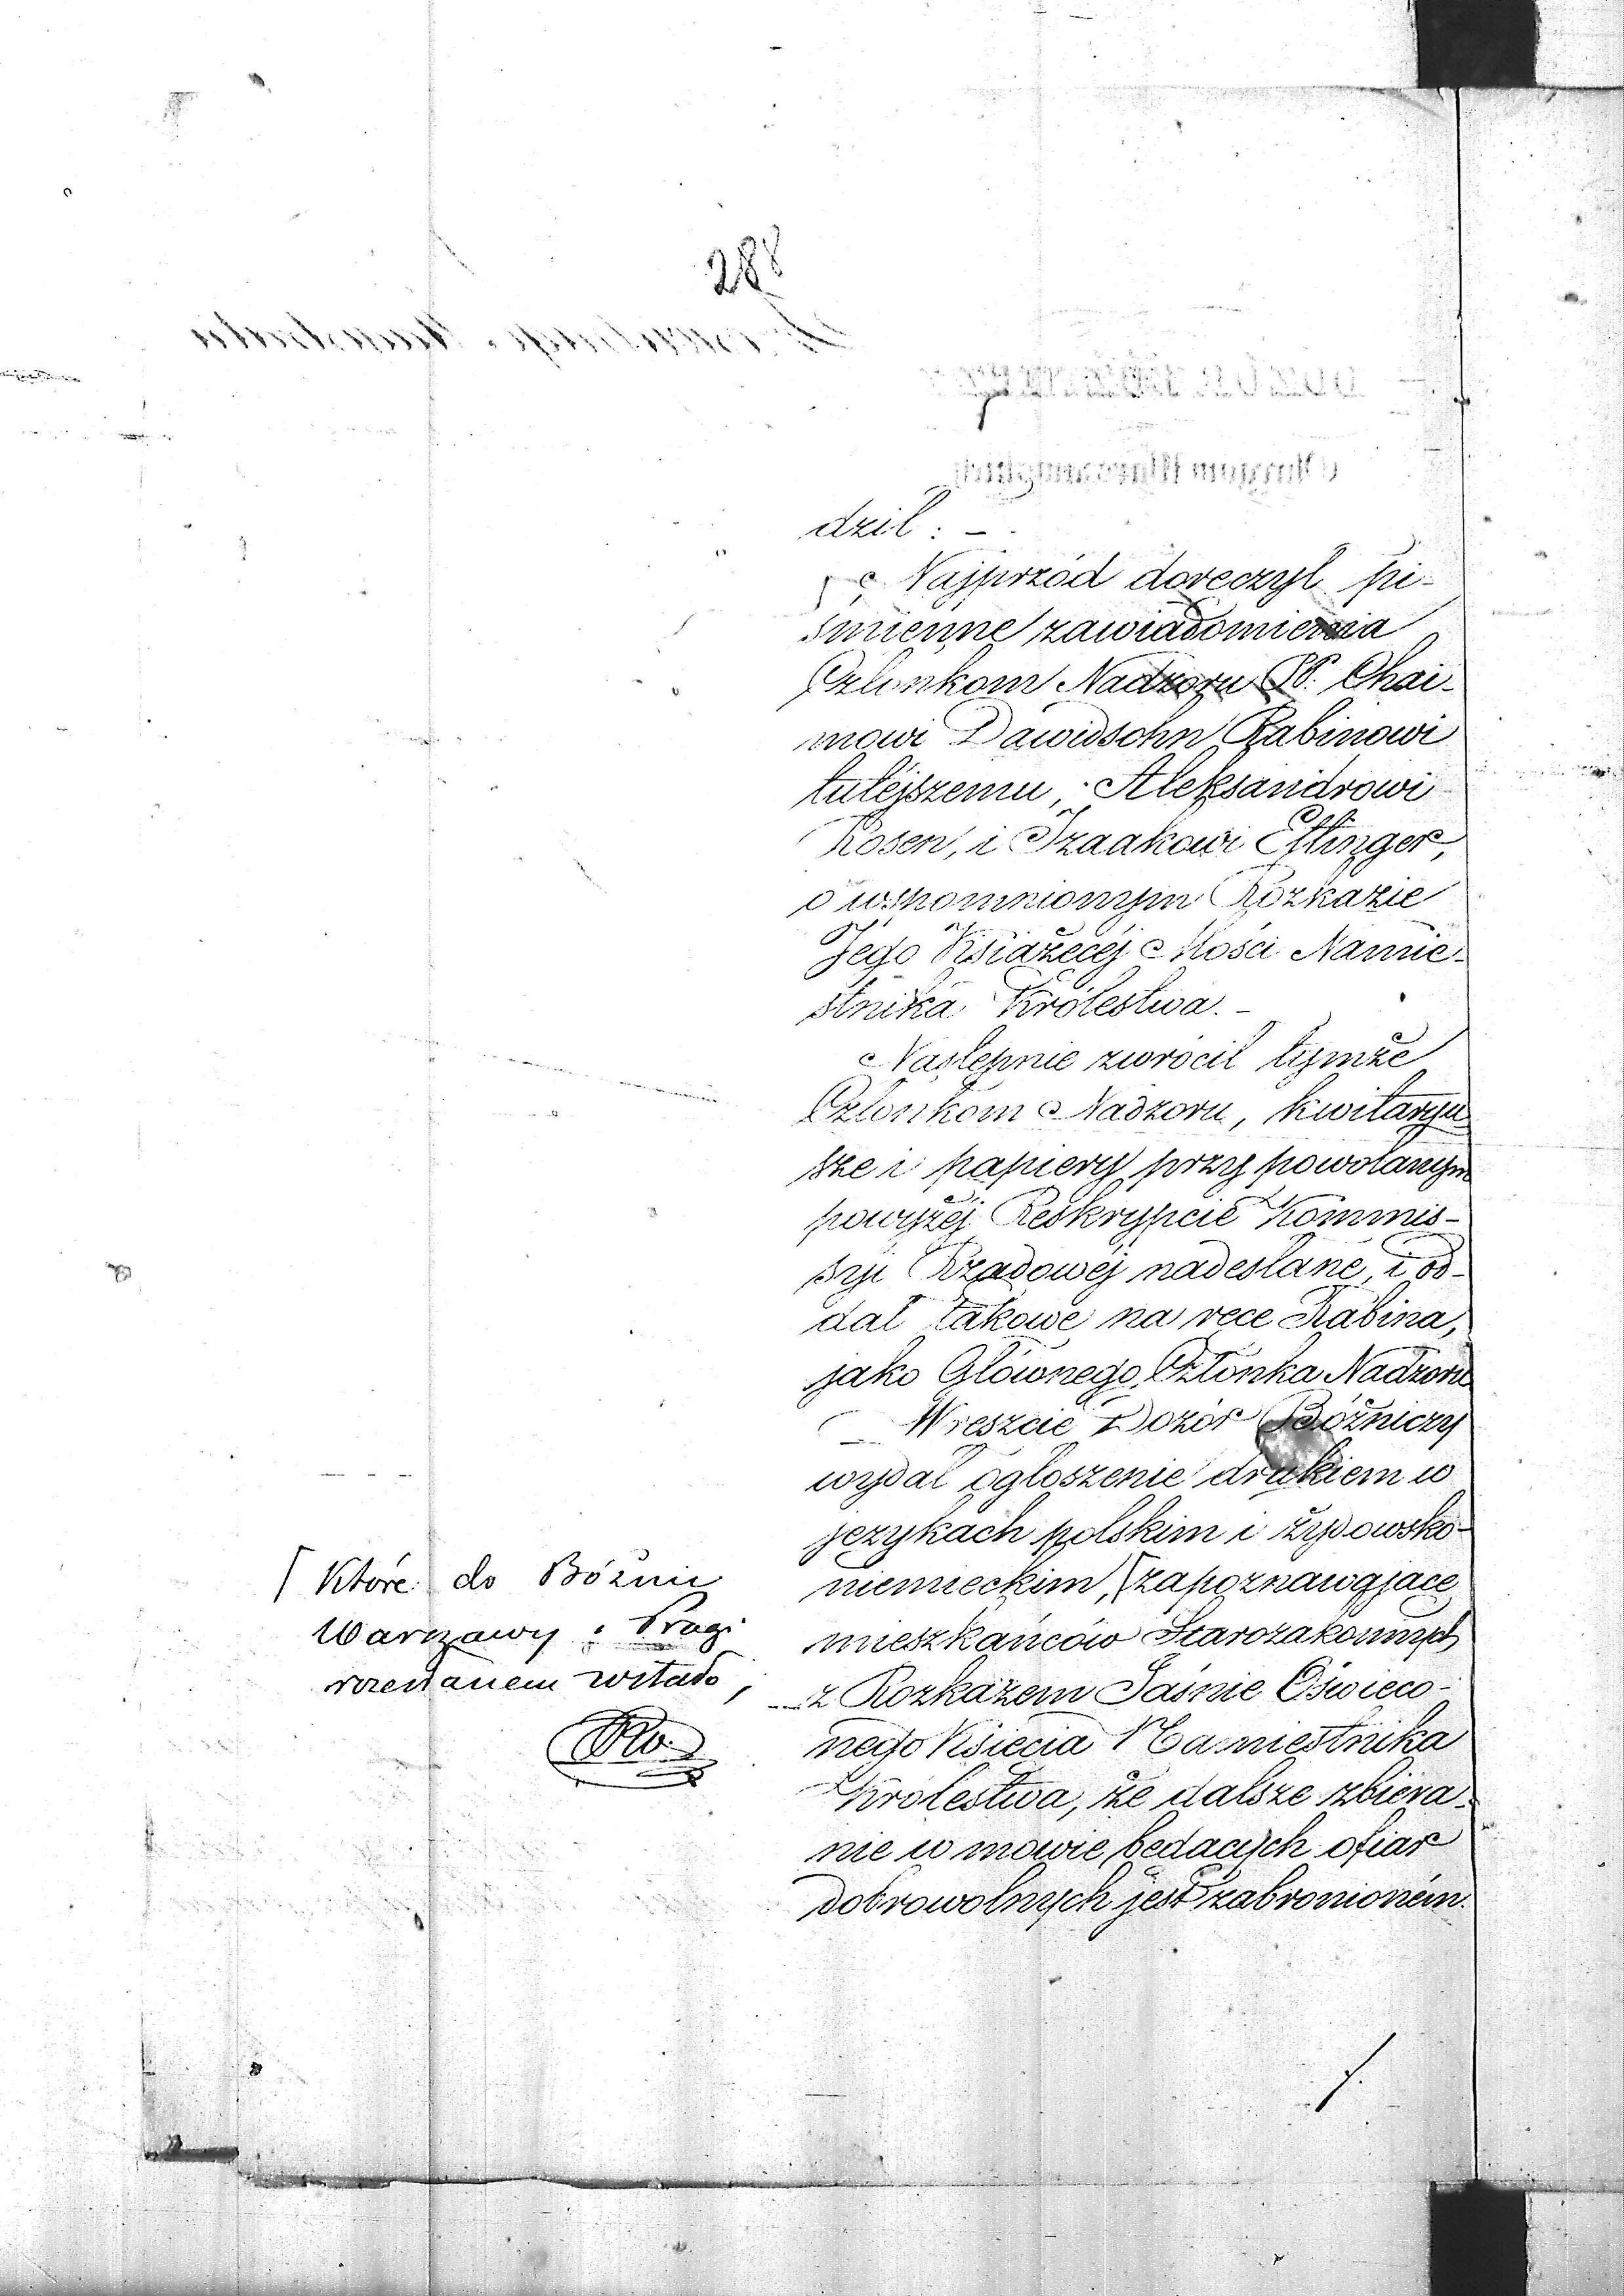 288
dził: –
Najprzód doręczył pi-
śmienne zawiadomienia
Członkom Nadzoru PP. Chai-
mowi Dawidsohn Rabinowi
tutéjszemu, Aleksandrowi
Rosen, i Izaakowi Ettinger,
o wspomnionym Rozkazie
Jego Książęcéj Mości Namie-
stnika Królestwa. –
Następnie zwrócił tymże
Członkom Nadzoru, kwitaryu
sze i papiery przy powołanym
powyżéj Reskrypcie Kommis-
syi Rządowéj nadesłane, i od-
dał takowe na ręce Rabina,
jako Głównego Członka Nadzoru
Wreszcie Dozór Bóżniczy
wydał ogłoszenie drukiem w
językach polskim i żydowsko-
niemieckim, [zapoznawające
mieszkańców Starozakonnych
z Rozkazem Jaśnie Oświeco-
nego Księcia Namiestnika
Królestwa, że dalsze zbiera-
nie w mowie będących ofiar
dobrowolnych jest zabronioném.
[ Które do Bóżnic
Warszawy i Pragi
rozesłanem zostało,